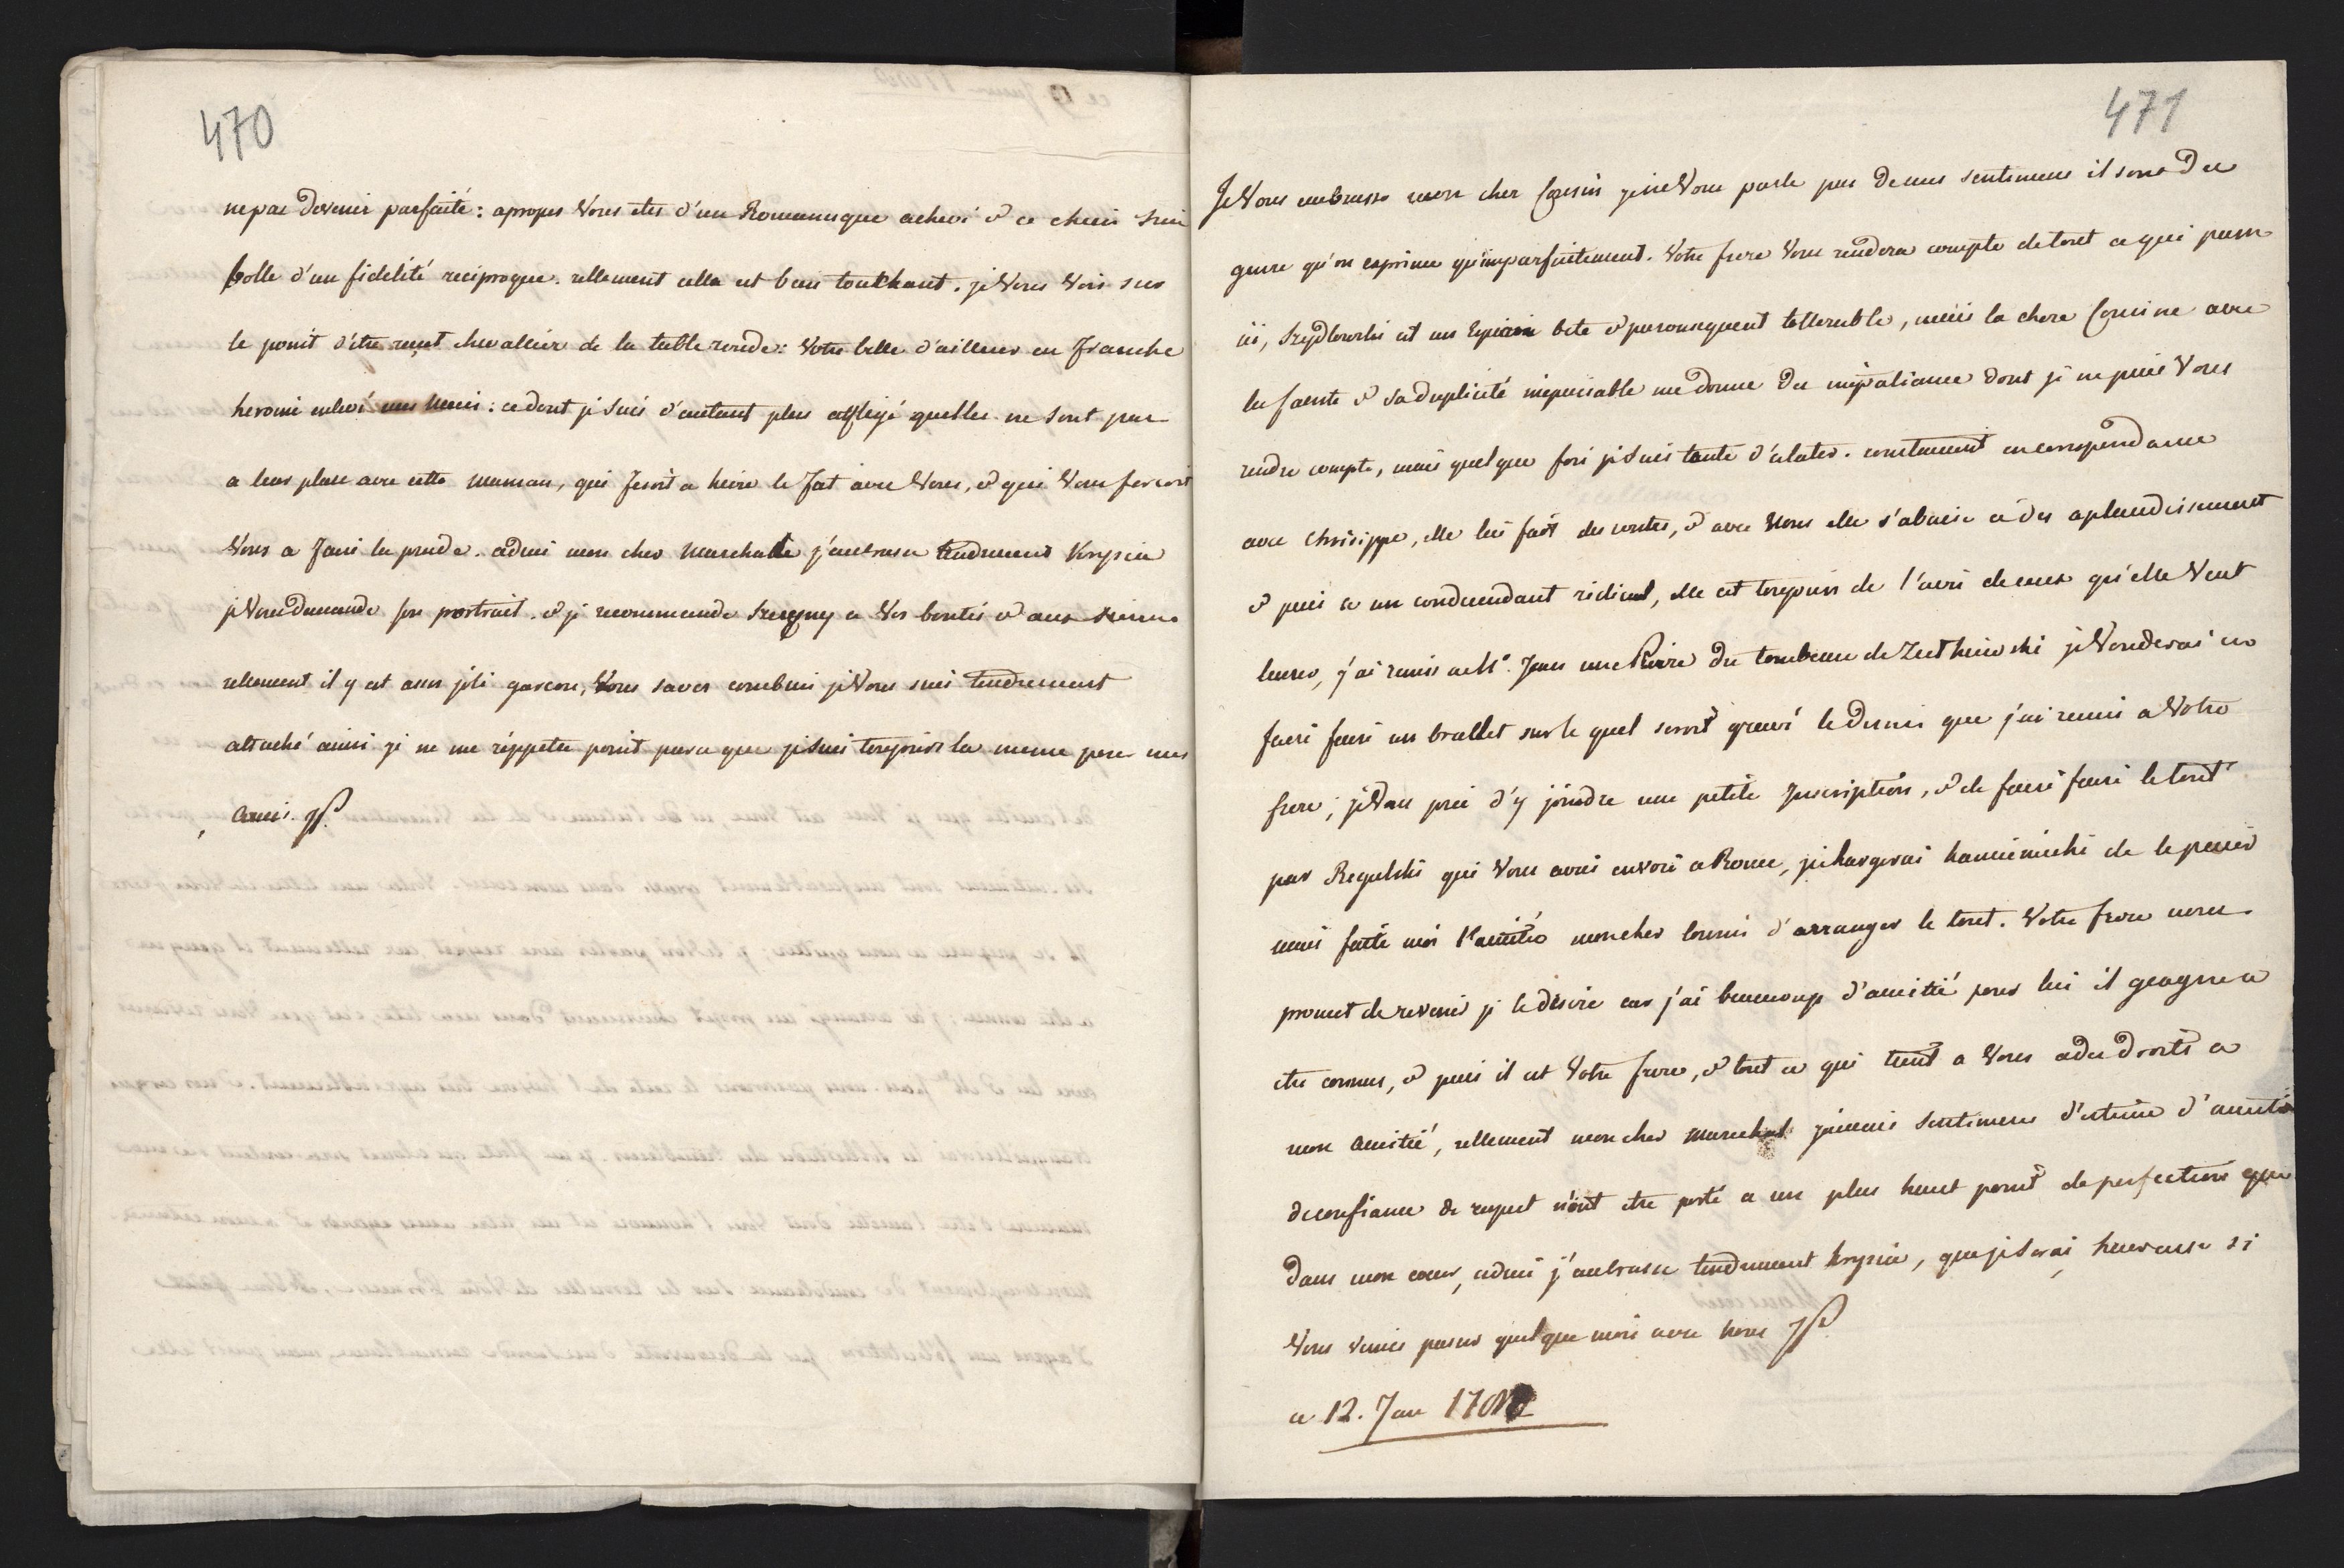 470
ne pas devenir parfaite: apropos Vous etes d'un Romanesque achevé & ce chien sim
bolle d'un fidelité reciproque. rellement cella est bien toulhant. je Vous Vois sur
le point d'etre reçut chevallier de la table ronde: Votre belle d'ailleurs en Franche
heroine enlevé : ce dont je suis d'autant plus afflijé quelles ne sont pas
a leur plase avec cette maman, qui feroit a faire le fat avec Vous, & qui Vous
Vous a faire la prude. adieu mon cher Marechalle j'embrasse tendrement Krysia
je Vous demande son portrait. & je recommande a Vos bontés & aux siennes
rellement il y est assez joli garcon, Vous savez combien je Vous suis tendrement
attaché ainsi je ne me réppette point parce que je suis toujours la meme pour mes
amis.
471
Je Vous embrasse mon cher Cousin je ne Vous parle pas de mes sentimens il sont du
genre qu'on exprime qu'imparfaitement. Votre frere Vous rendera compte de tout ce qui passe
ici, Szydlowski est un bete & parconsequent tollerable, mais la chere Cousine avec
la fausté & sa duplicité me donne des dont je ne puis Vous
rendre compte, mais quelque fois je suis tanté d'eclater. en correspondance
avec Chrisippe, elle lui fait des contes, & avec Nous elle s'abaise a des aplaudissement
& puis a un condecendant ridicul, elle est toujours de l'avis de ceux qu'elle Veut
leurer, j'ai remis a Mr. Jean une Piere du tombeau de je Vouderai en
faire faire un brallet sur le quel seroit gravé le dessin que j'ai remis a Votre
frere; je Vous prie d'y joindre une petite Inscription, & de faire faire le tout
par Regulski qui Vous avai envoié a Rome, je chargerai de le paier
mais faite moi l'amitié mon cher Cousin d'arranger le tout. Votre frere nous
promet de revenir je le desire car j'ai beaucoup d'amitié pour lui il geagne a
etre connus, & puis il est Votre frere, & tout ce qui tient a Vous a des droits a
mon amitié, rellement mon cher Marechal jamais sentimens d'estime d'amitié
de confiance de respect n'ont eté porté a un plus haut point de perfection que
dans mon cœur, adieu j'embrasse tendrement Krysia, que je serai heureuse si
Vous veniez passer quelque mois avec nous
ce 12. Jan